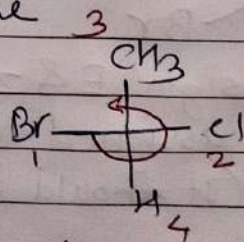 3
CH3
Br Cl
1 2
H
4